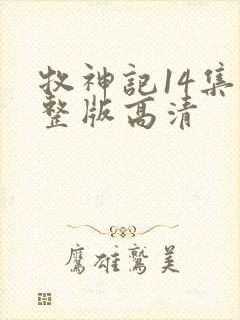 牧神記14集
整版高清
鷹雄鷲美